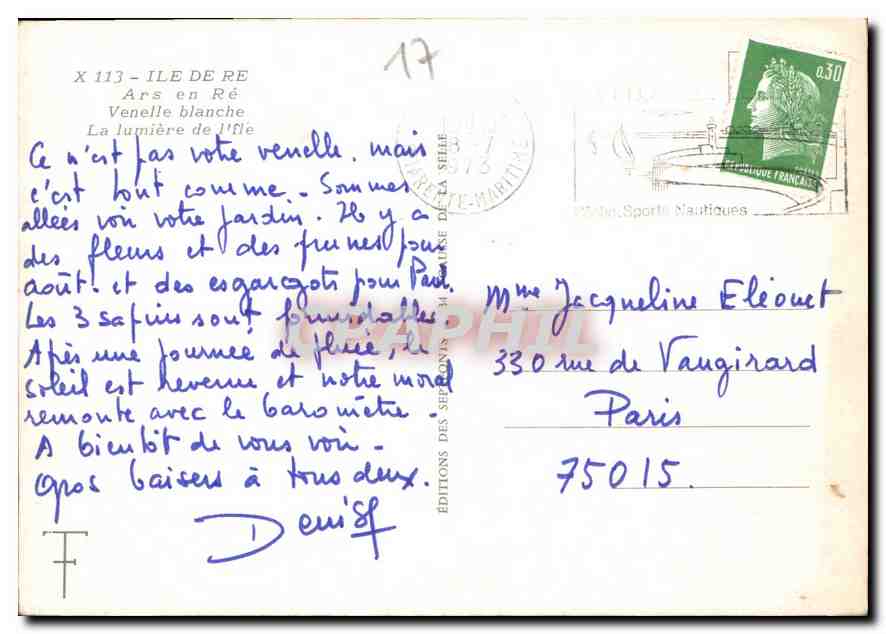 17
X 113 - ILE DE RE
Ars en Ré
Venelle blanche
La lumière de l'île
Ce n'est pas votre venelle. mais
c'est tout comme - Sommes
allées voir votre jardin. Il y a
des fleurs et des prunes pour
août. et des esgargots pour Paul.
Les 3 sapins sont formidables.
Après une journée de pluie, le
soleil est revenu et notre moral
remonte avec le baromètre -
A bientôt de vous voir -
Gros baisers à tous deux.
Denise
ÉDITIONS DES SEPTFONTS 34 DE LA SELLE
1973
CHARENTE-MARITIME
Pêche, Sports Nautiques
0,30
REPUBLIQUE FRANÇAISE
CPAPHIL
Mme Jacqueline Eléouet
330 rue de Vaugirard
Paris
75015.